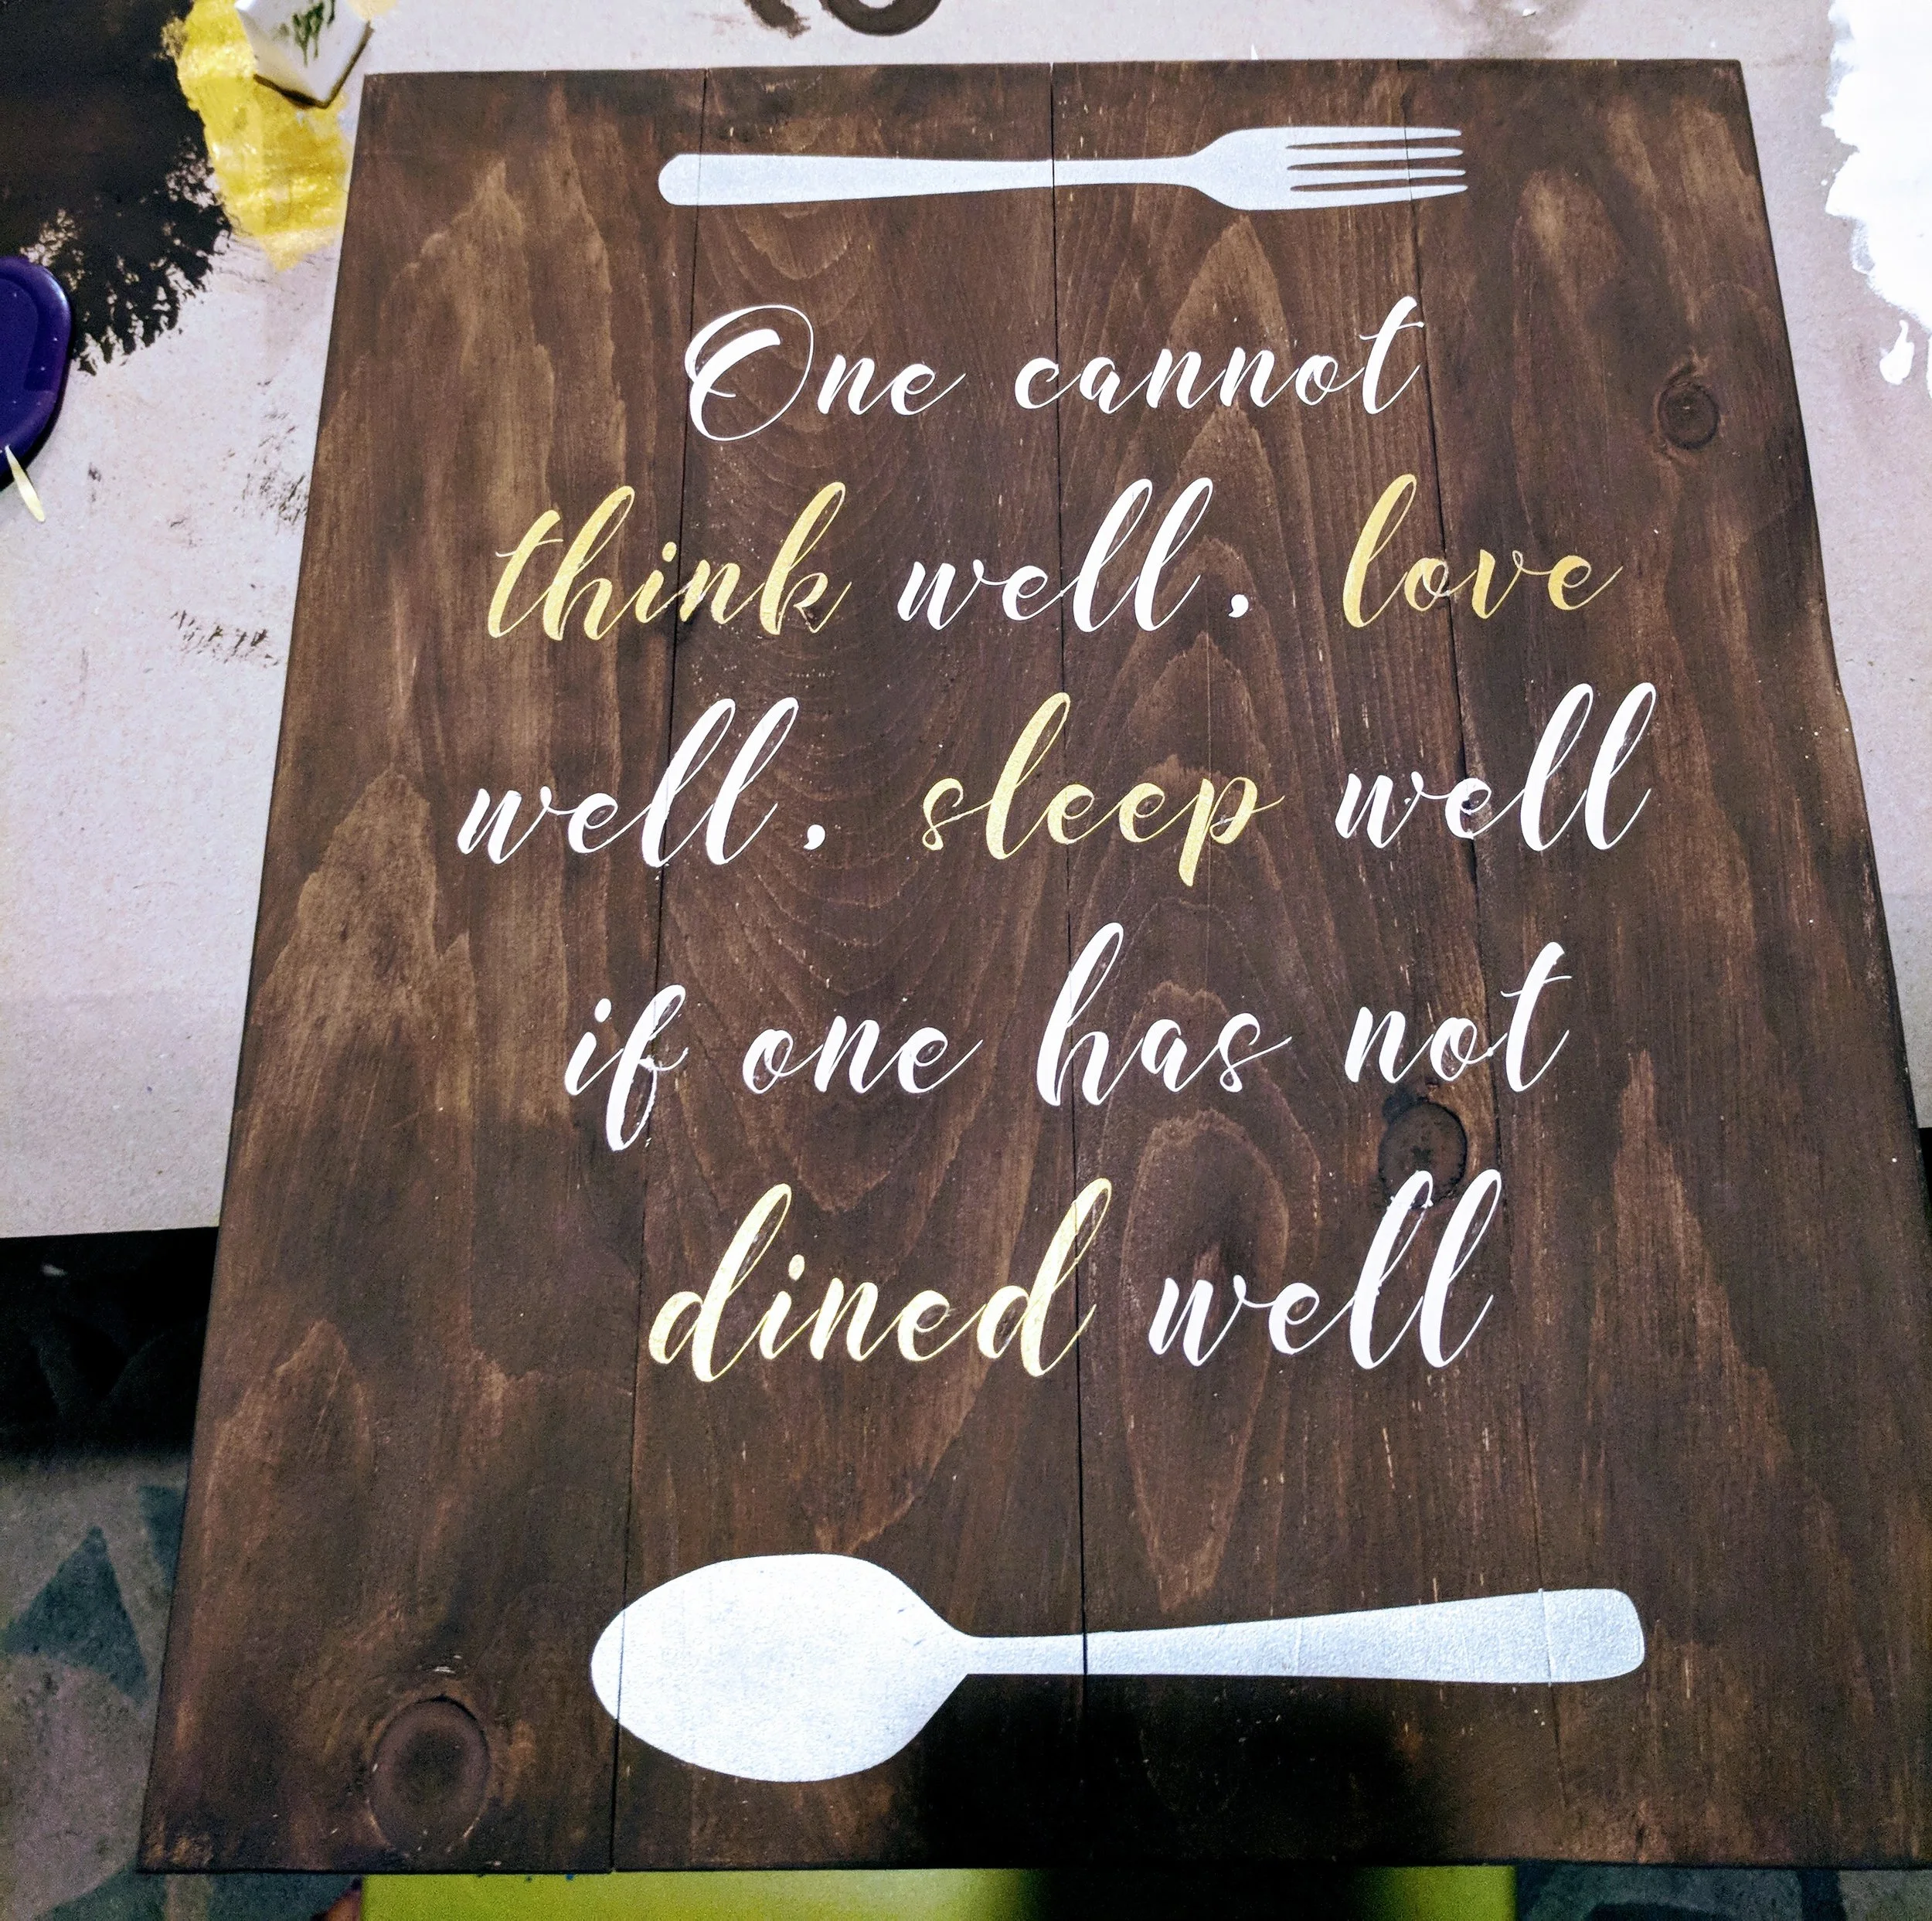 One cannot
think well, love
well, sleep well
if one has not
dined well